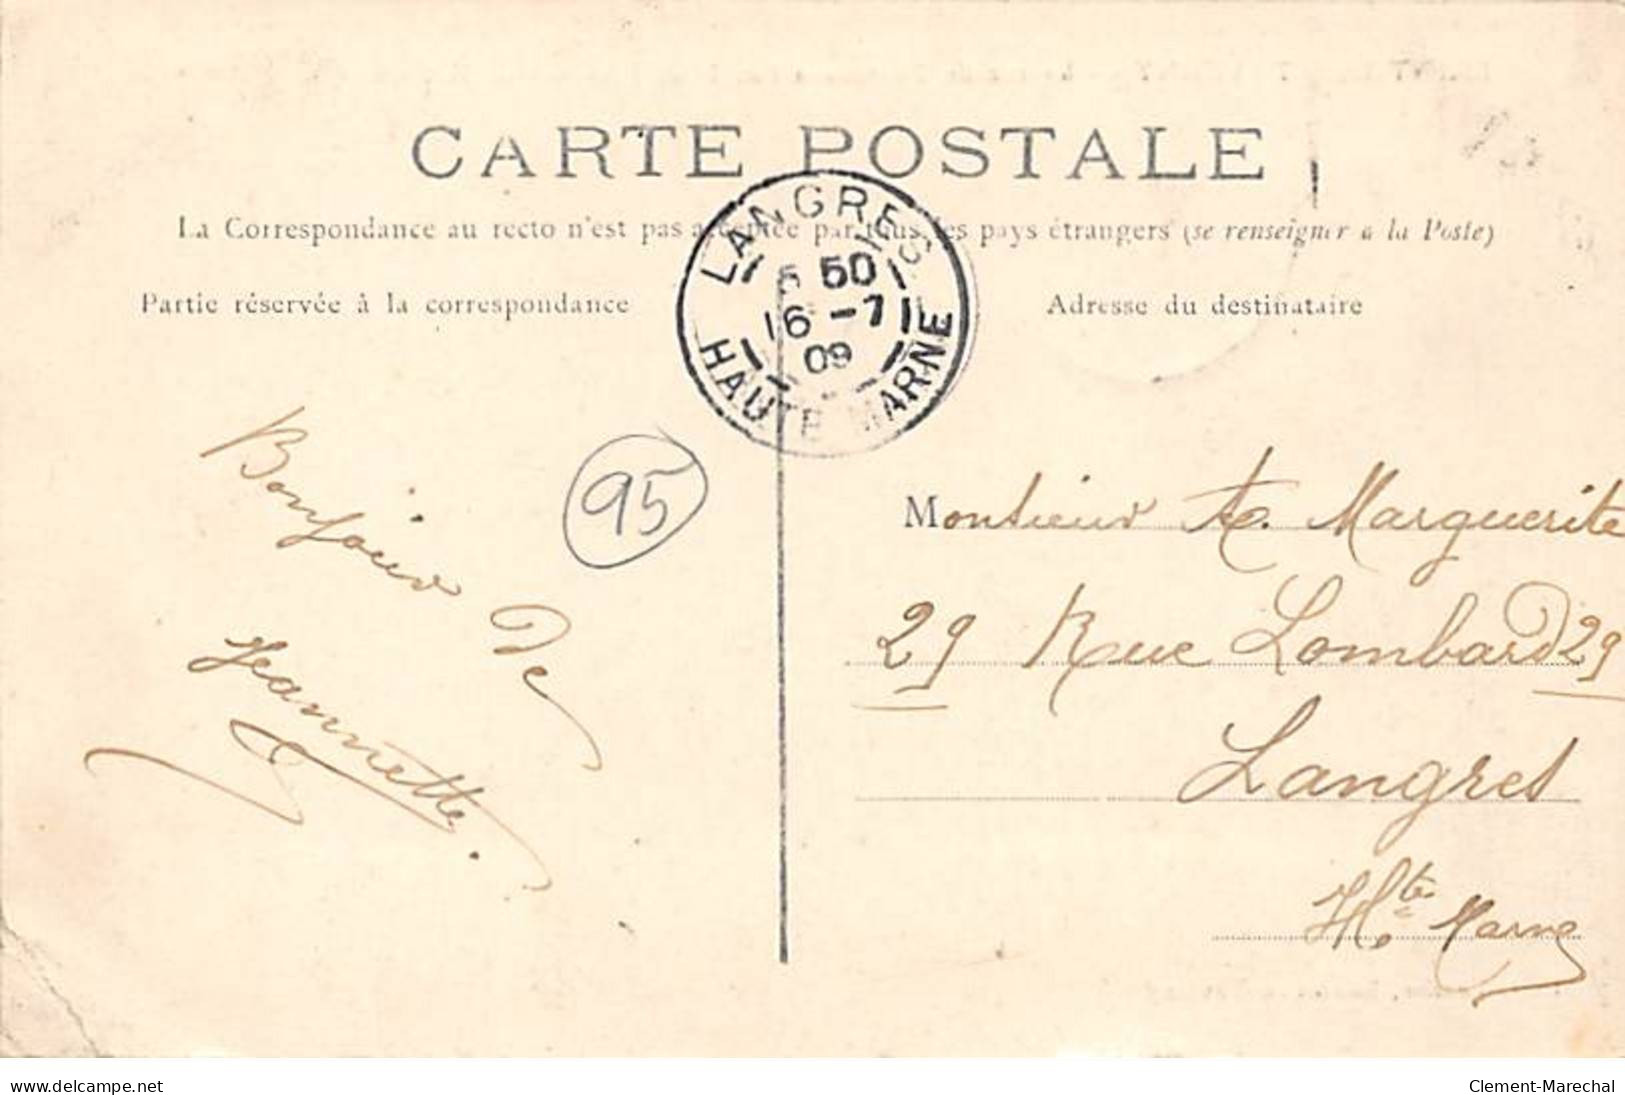 CARTE POSTALE
La Correspondance au recto n'est pas acceptée par tous les pays étrangers (se renseigner a la Poste)
LANGRES
5 50
16 -7
09
HAUTE MARNE
Partie réservée à la correspondance
Adresse du destinataire
Bonjour De
Jeannette.
95
Monsieur A. Marguerite
29 Rue Lombard 29
Langres
Hte Marne
www.delcampe.net
Clement-Marechal